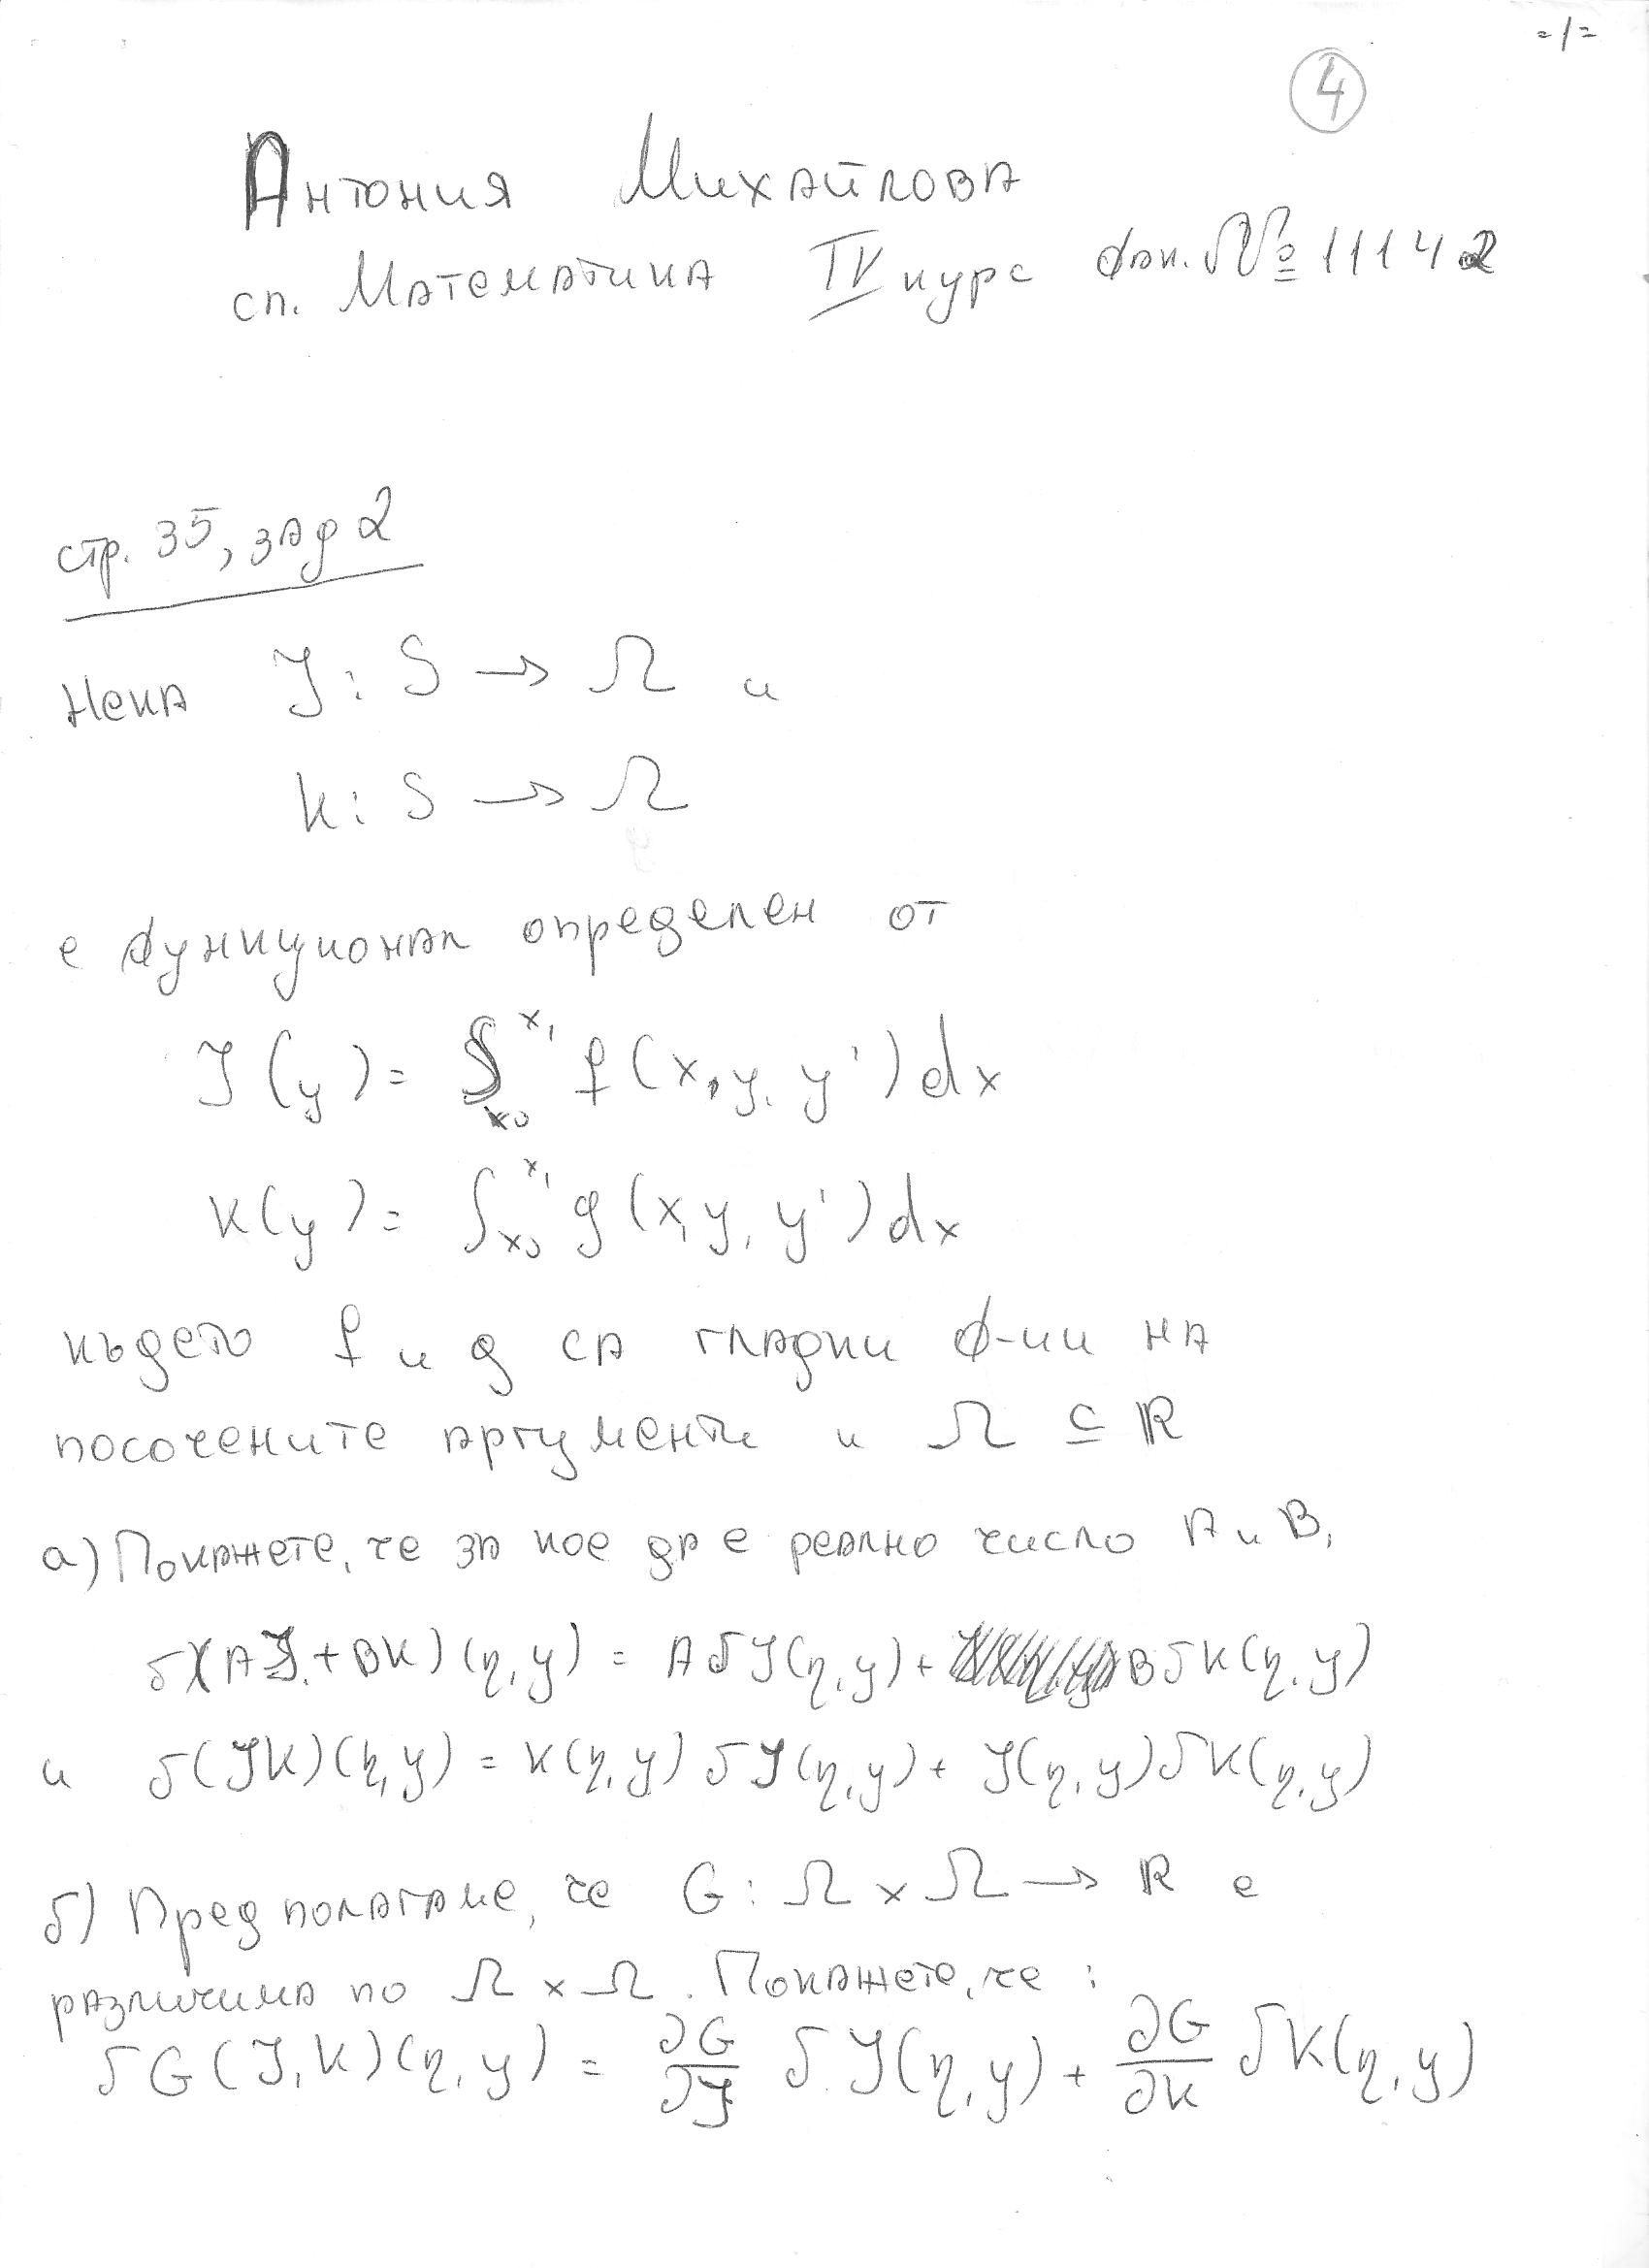 =1=
4
Антония Михайлова
сп. Математика IV курс фак. № 11142
стр. 35, зад 2
Нека J: S → Ω и
K: S → Ω
е функционал определен от
J(y) = ∫_{x_0}^{x_1} f(x, y, y') dx
K(y) = ∫_{x_0}^{x_1} g(x, y, y') dx
където f и g са гладки ф-ии на
посочените аргументи и Ω ⊆ ℝ
а) Покажете, че за кое да е реално число A и B,
δ(AJ + BK)(η, y) = AδJ(η, y) + BδK(η, y)
и δ(JK)(η, y) = K(η, y) δJ(η, y) + J(η, y) δK(η, y)
б) Предполагаме, че G: Ω x Ω → ℝ е
различима по Ω x Ω. Покажете, че:
δG(J, K)(η, y) = ∂G/∂J δJ(η, y) + ∂G/∂K δK(η, y)